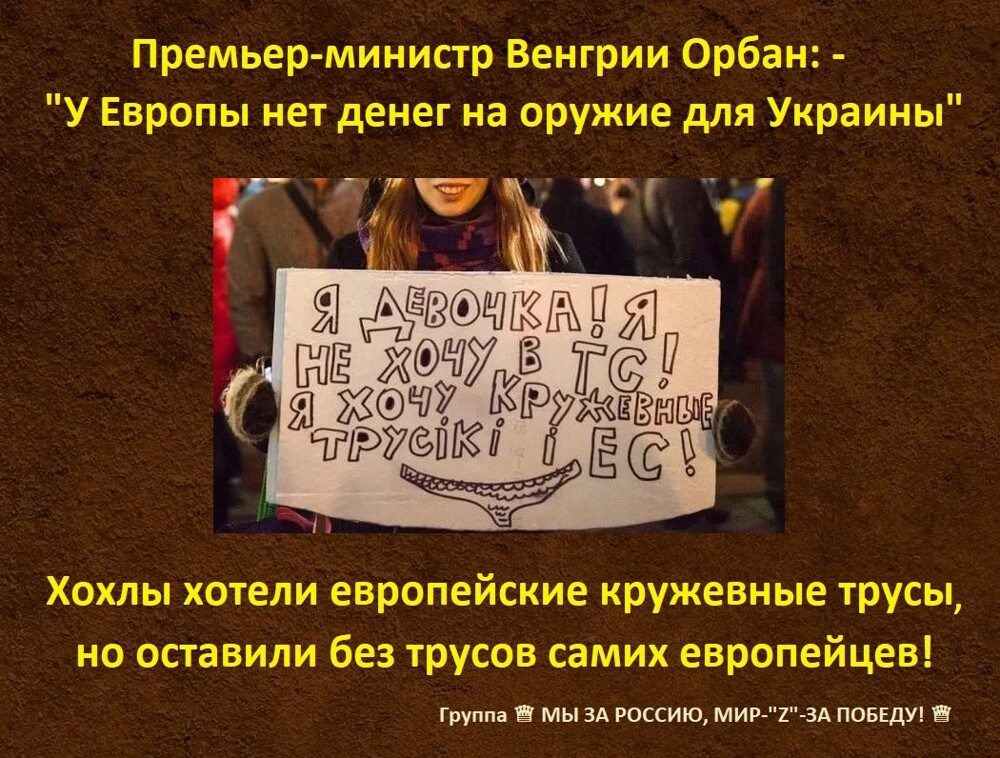 Премьер-министр Венгрии Орбан: -
"У Европы нет денег на оружие для Украины"
Я ДЕВОЧКА! Я
НЕ ХОЧУ В ТС!
Я ХОЧУ КРУЖЕВНЫЕ
ТРУСІКІ І ЕС!
Хохлы хотели европейские кружевные трусы,
но оставили без трусов самих европейцев!
Группа ♕ МЫ ЗА РОССИЮ, МИР-"Z"-ЗА ПОБЕДУ! ♕